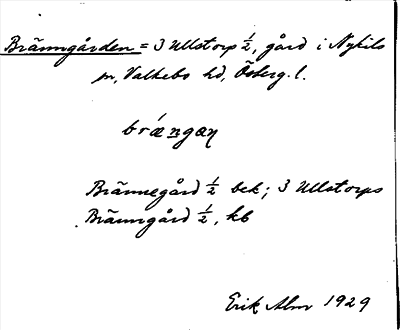 Bränngården = 3 Ullstorp ½, gård i Nykils
sn, Valkebo hd, Österg. l.
brǽngæn
Brännegård ½ bek; 3 Ullstorps
Bränngård ½, kb
Erik Alm 1929